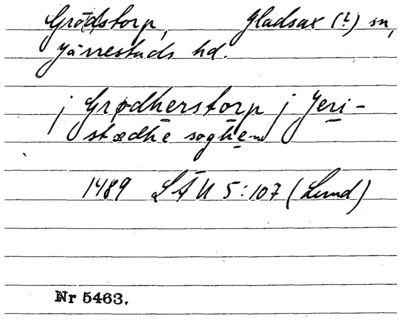 Grödstorp, Gladsax (?) sn,
Järrestads hd.
j Grødherstorp j Jeri-
stædhe soghen
1489 LÄU 5:107 (Lund)
Nr 5463.